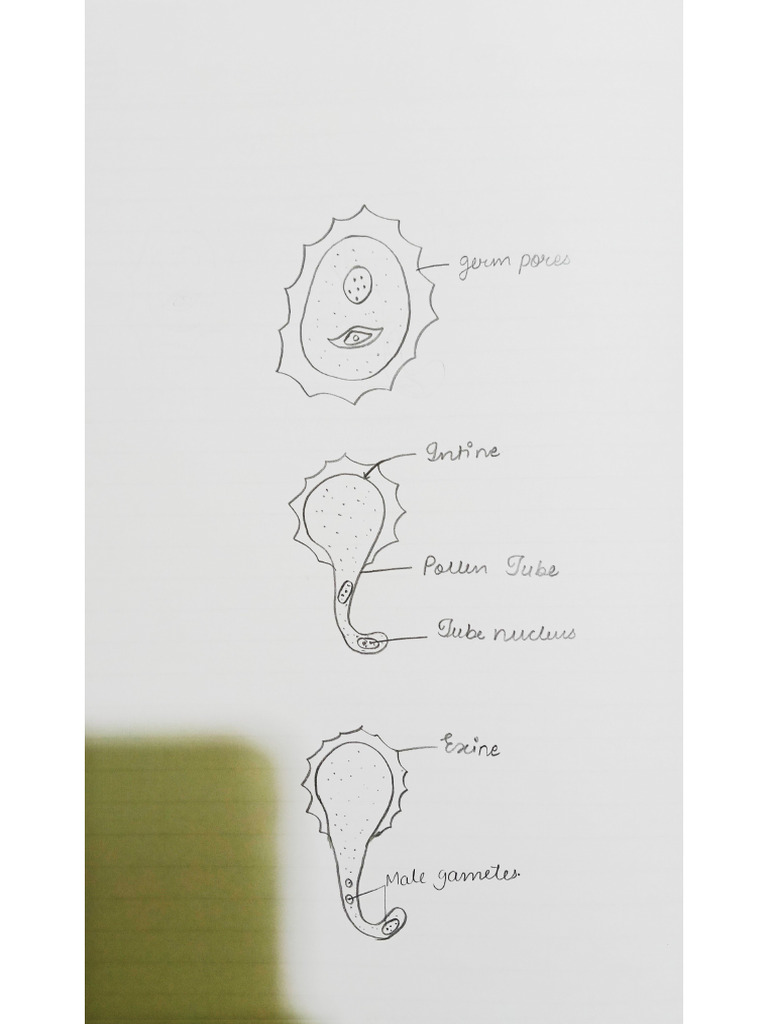 germ pores
Intine
Pollen Tube
Tube nucleus
Exine
Male gametes.